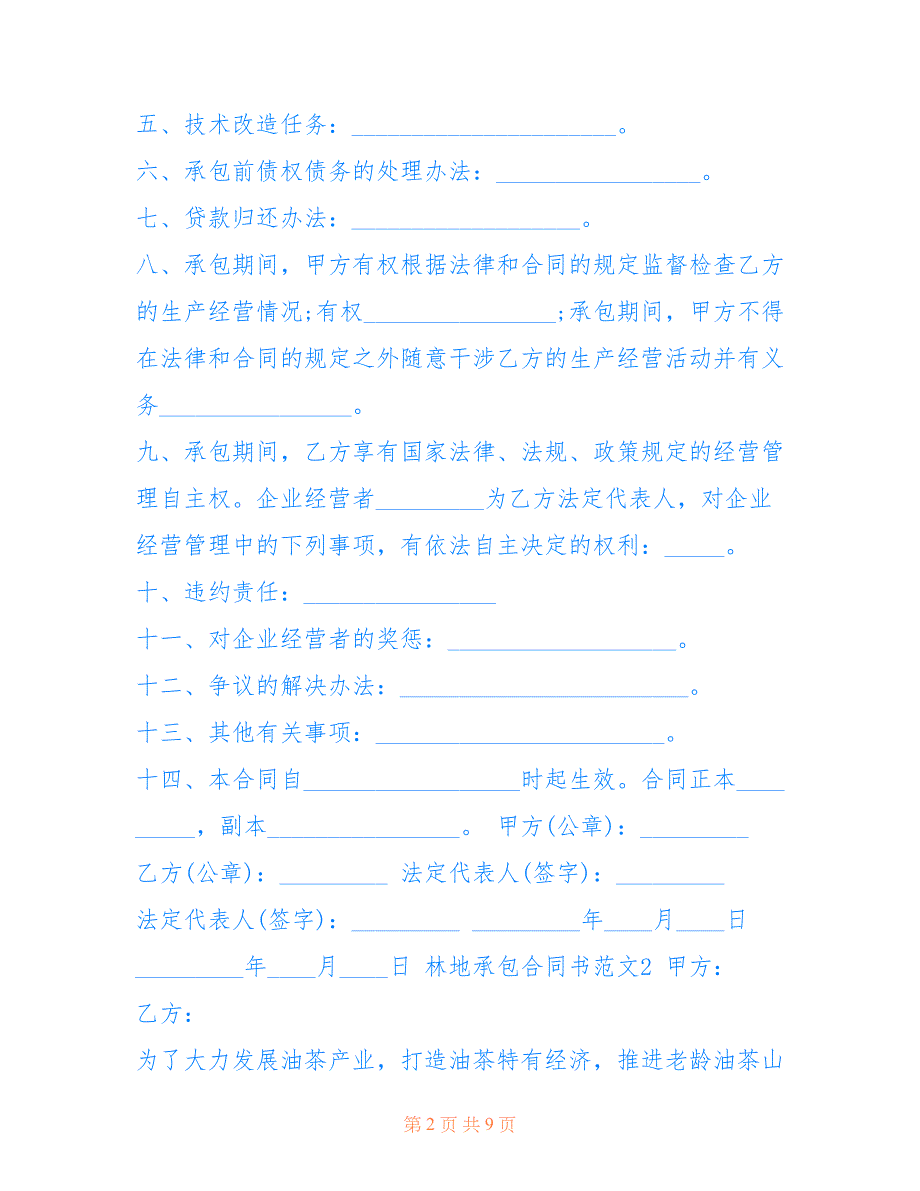 五、技术改造任务：______________________。
六、承包前债权债务的处理办法：_________________。
七、贷款归还办法：___________________。
八、承包期间，甲方有权根据法律和合同的规定监督检查乙方
的生产经营情况;有权________________;承包期间，甲方不得
在法律和合同的规定之外随意干涉乙方的生产经营活动并有义
务________________。
九、承包期间，乙方享有国家法律、法规、政策规定的经营管
理自主权。企业经营者_________为乙方法定代表人，对企业
经营管理中的下列事项，有依法自主决定的权利：_____。
十、违约责任：________________
十一、对企业经营者的奖惩：___________________。
十二、争议的解决办法：________________________。
十三、其他有关事项：________________________。
十四、本合同自__________________时起生效。合同正本____
_____，副本________________。 甲方(公章)：_________
乙方(公章)：_________ 法定代表人(签字)：_________
法定代表人(签字)：_________ _________年____月____日
_________年____月____日 林地承包合同书范文2 甲方：
乙方：
为了大力发展油茶产业，打造油茶特有经济，推进老龄油茶山
第 2 页 共 9 页